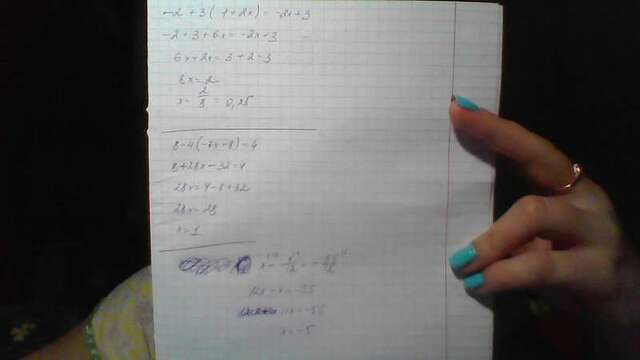 -2+3(1+2x)=-2x+3
-2+3+6x=-2x+3
6x+2x=3+2-3
8x=2
x=2/8=0,25
8-4(-7x+8)=4
8+28x-32=4
28x=4-8+32
28x=28
x=1
x-x/12=-55/12
12x-x=-55
11x=-55
x=-5